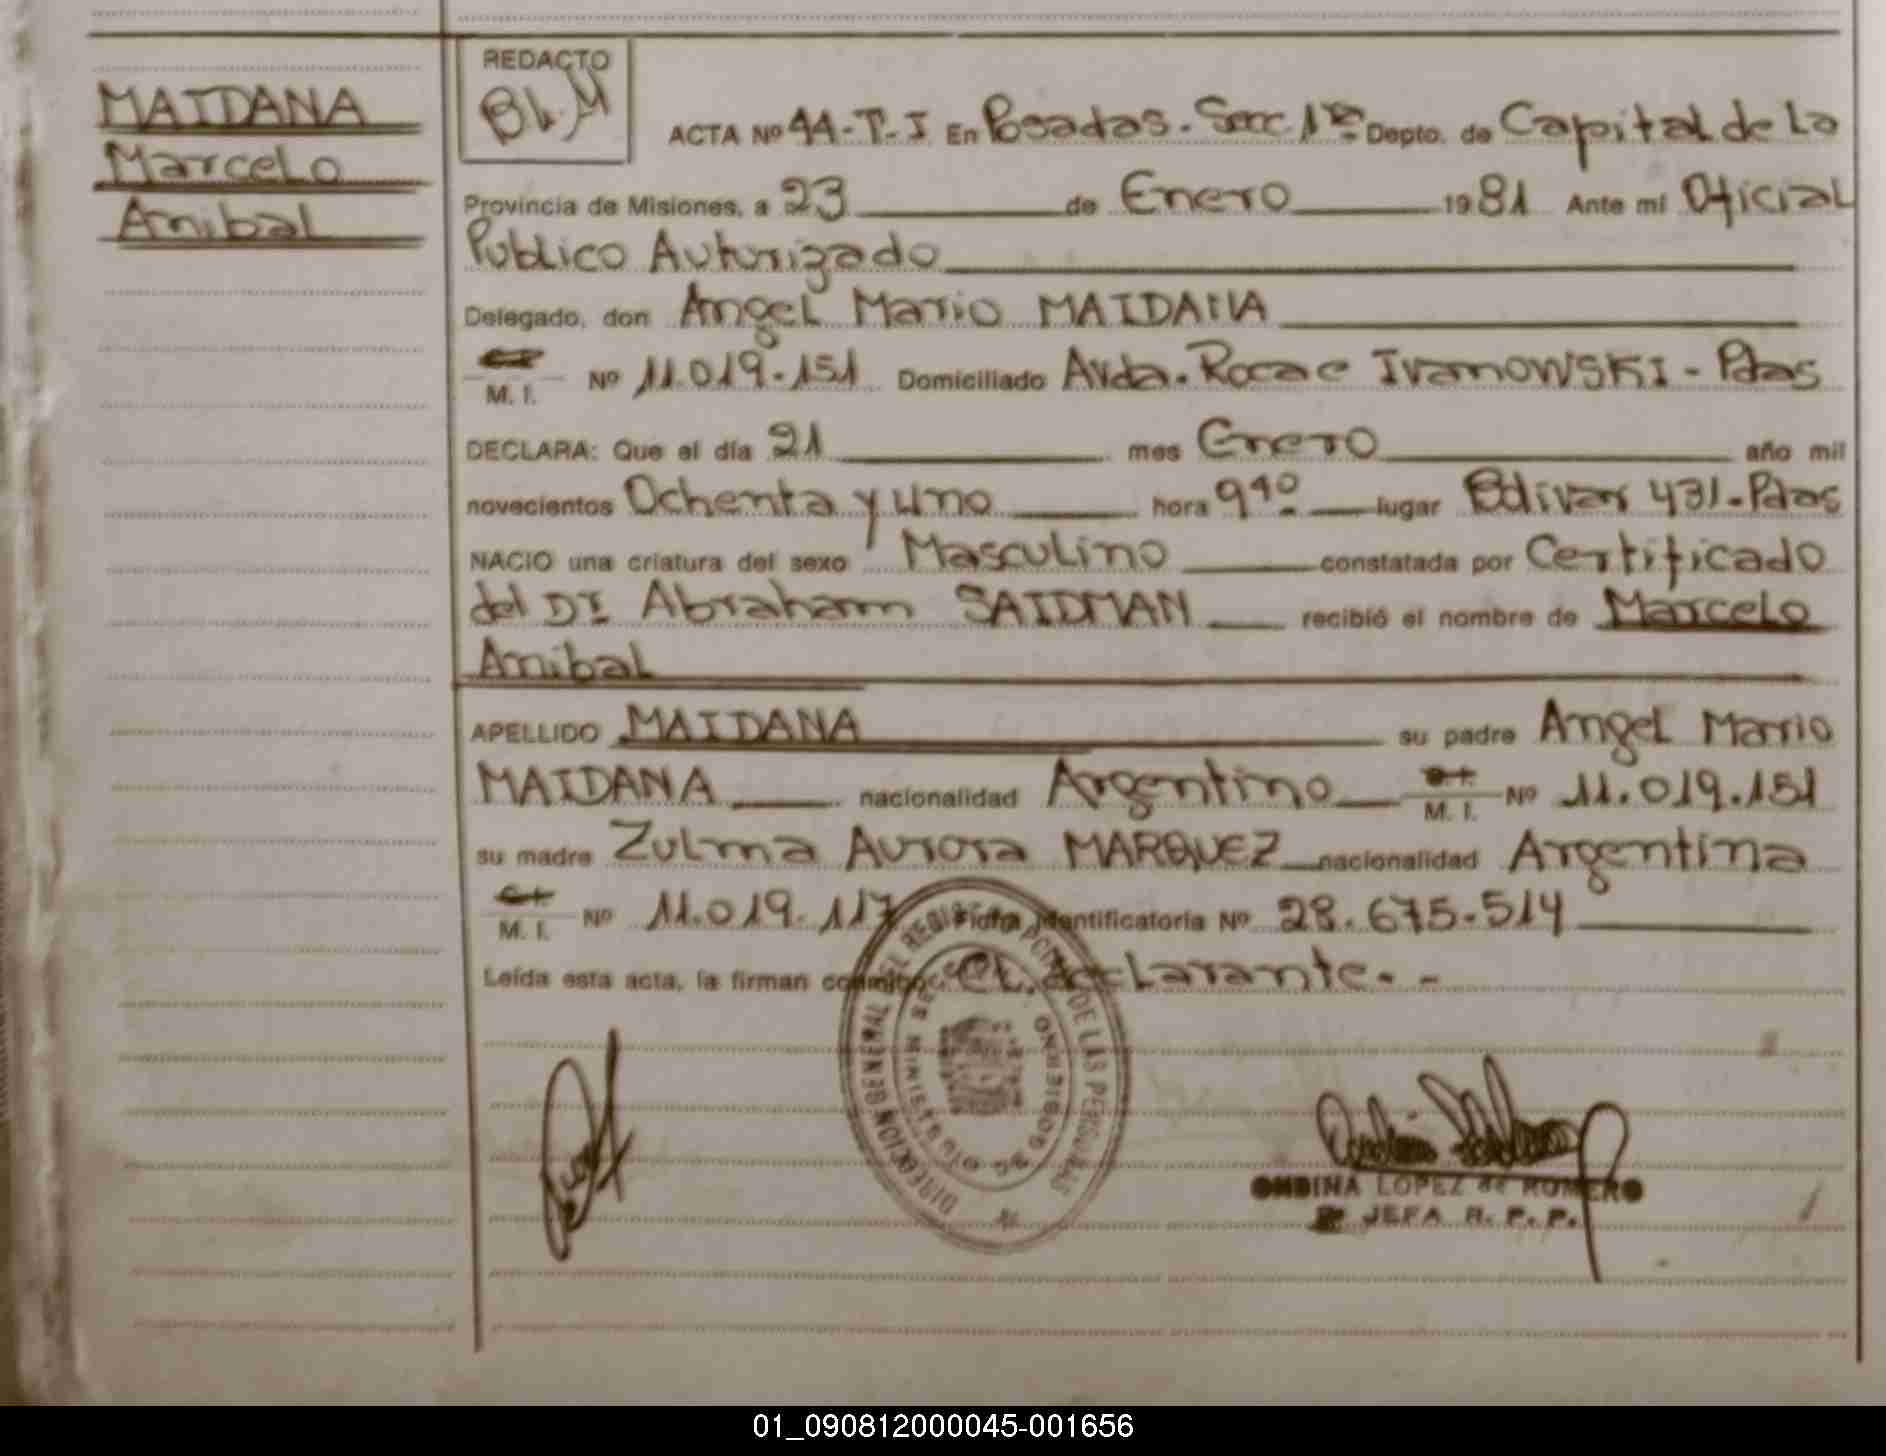 MAIDANA
Marcelo
Anibal
REDACTO
ACTA Nº 44-T-I En Posadas-Secc. 1ª Depto. de Capital de la
Provincia de Misiones, a 23 de Enero 1981 Ante mi Oficial
Publico Autorizado
Delegado, don Angel Mario MAIDANA
M. I. Nº 11.019.151 Domiciliado Avda. Roca e Ivanowski - Pdas
DECLARA: Que el día 21 mes Enero año mil
novecientos Ochenta y uno hora 9 40 lugar Bolivar 431-Pdas
NACIO una criatura del sexo Masculino constatada por Certificado
del Dr Abraham SAIDMAN recibió el nombre de Marcelo
Anibal
APELLIDO MAIDANA su padre Angel Mario
MAIDANA nacionalidad Argentino M. I. Nº 11.019.151
su madre Zulma Aurora MARQUEZ nacionalidad Argentina
M. I. Nº 11.019.117 Ficha Identificatoria Nº 28.675.514
Leída esta acta, la firman conmigo: el declarante.-
DIRECCION GENERAL DEL REGISTRO PCIAL. DE LAS PERSONAS
MINISTERIO DE GOBIERNO
ONDINA LOPEZ de ROMERO
JEFA R. P. P.
01_090812000045-001656